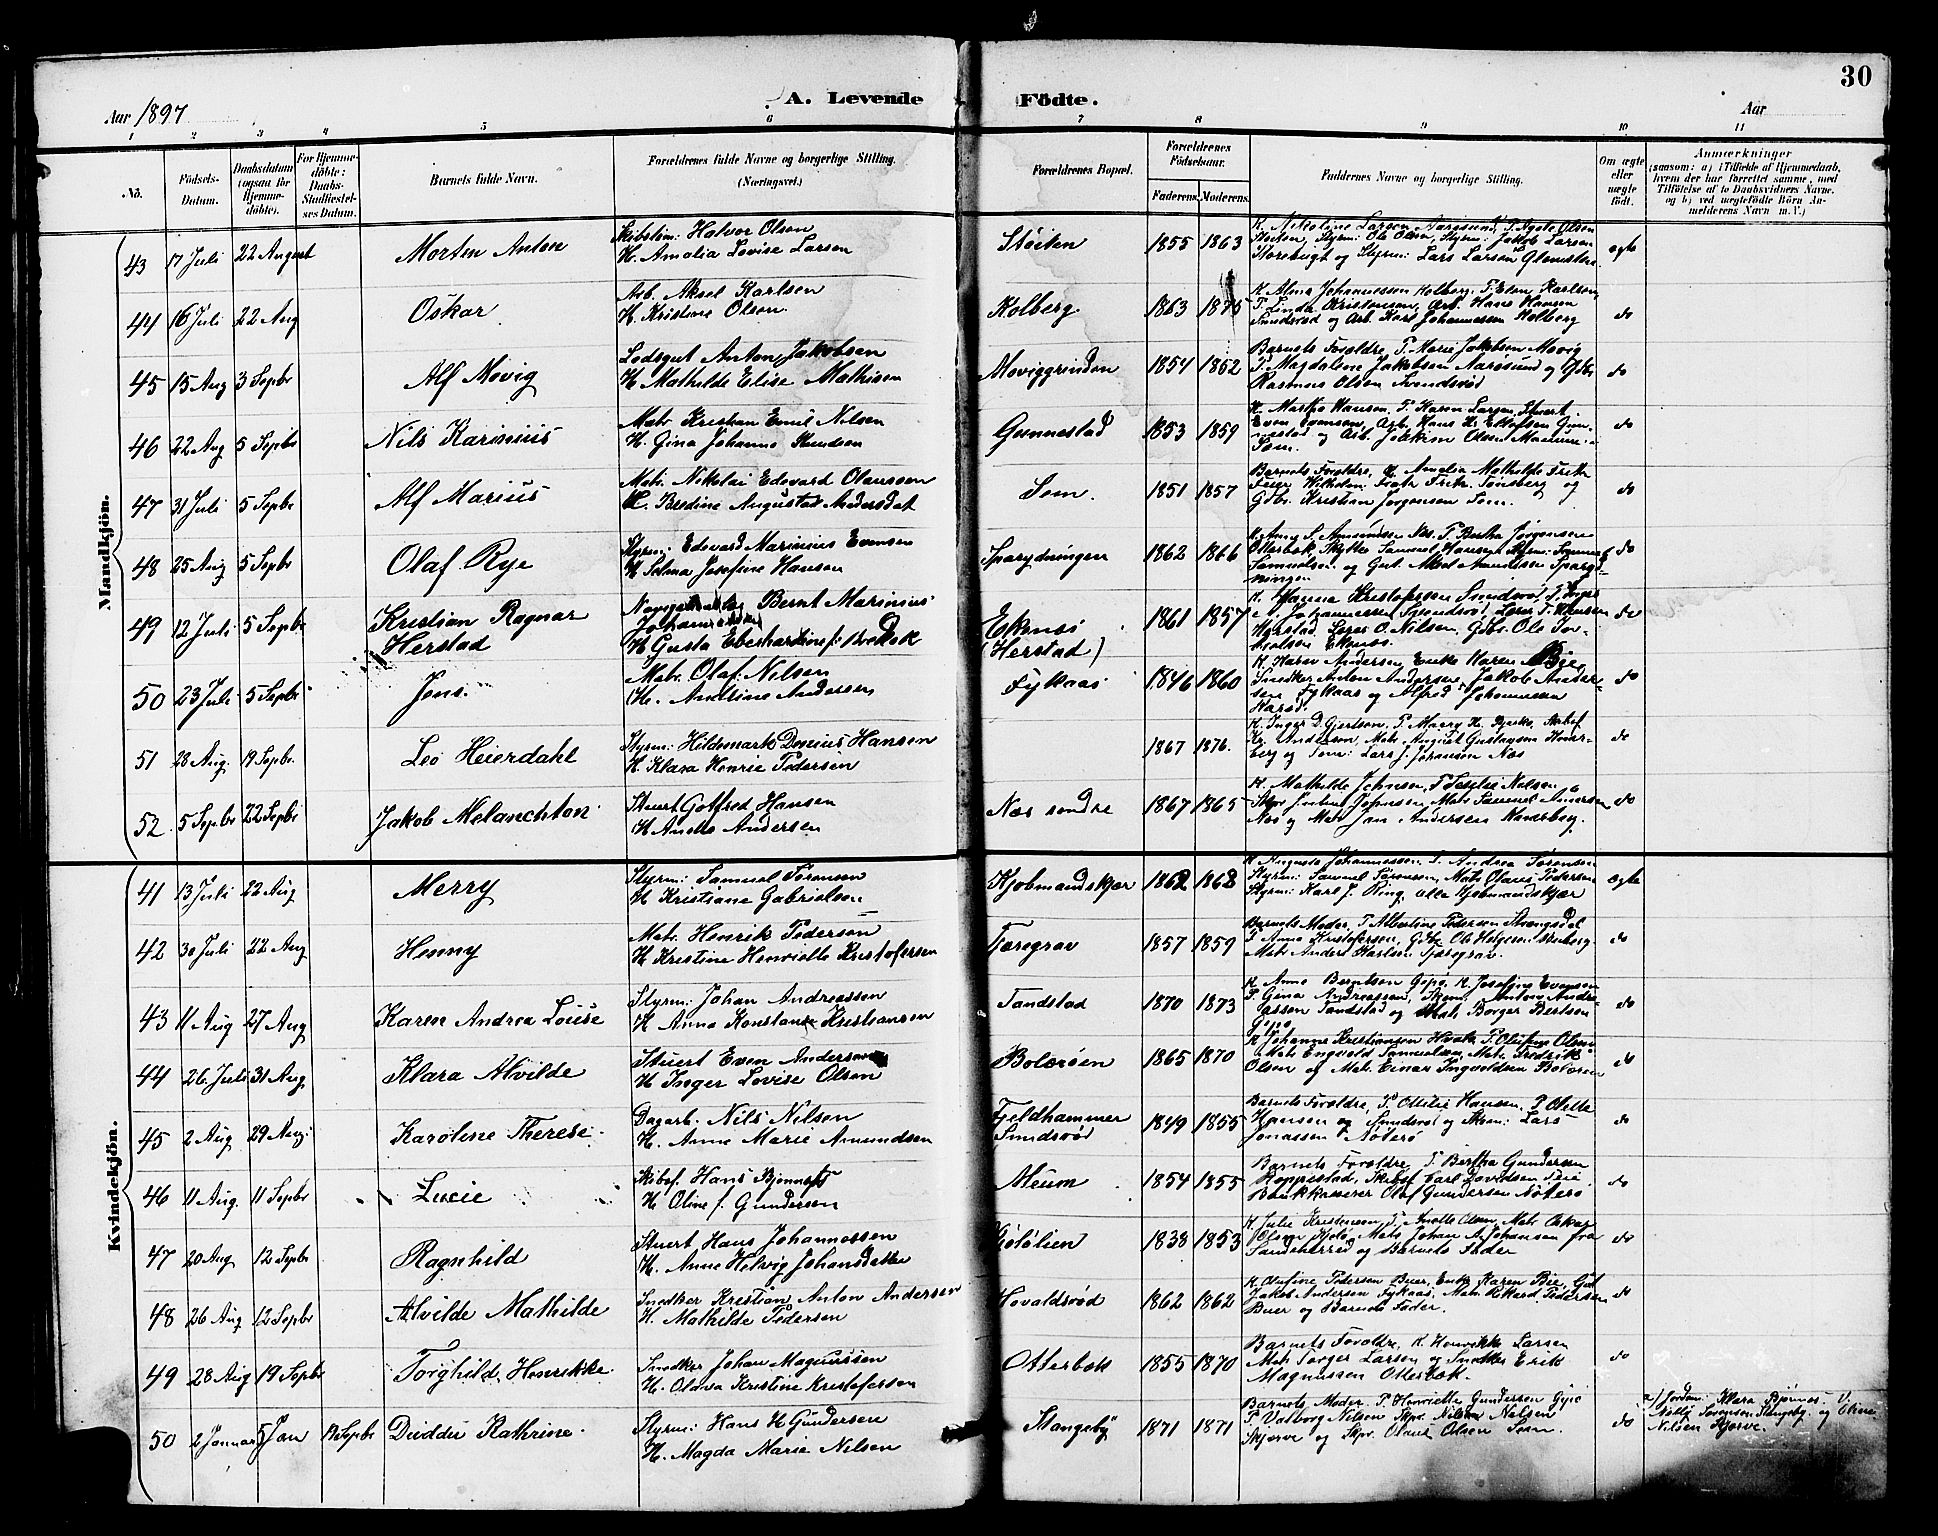 30
Aar 1897
A. Levende Födte.
Aar
1 2 3 4 5 6 7 8 9 10 11
No.
Födsels-Datum.
Daabsdatum (ogsaa for Hjemmedöbte).
For Hjemmedöbte: Daabs-Stadfæstelses Datum.
Barnets fulde Navn.
Forældrenes fulde Navne og borgerlige Stilling. (Næringsvei.)
Forældrenes Bopæl.
Forældrenes Födselsaar.
Faderens. Moderens.
Faddernes Navne og borgerlige Stilling.
Om ægte eller uægte født.
Anmærkninger (saasom: a) i Tilfælde af Hjemmedaab, hvem der har forrettet samme, med Tilföielse af to Daabsvidners Navne. og b) ved uægtefødte Börn Anmelderens Navn m. V.)
Mandkjön.
43 17 Juli 22 August Morten Anton
Skibstøm: Halvor Olsen
H. Amalia Lovise Larsen
Støiten 1855 1863
Støiten, Styrm: Ole Olsen, Styrm: Jakob Larsen
Storebugt og Styrm: Lars Larsen
ægte
44 16 Juli 22 Aug Oskar
Arb. Aksel Karlsen
H. Kristine Olsen
Kolberg 1863 1875
K. Alma Johannessen Holberg, P. Elen Karlsen,
P. Linda Kristensen, Arb. Hans Hansen
Smidsrød og Arb. Karl Johannessen Holberg
do
45 15 Aug 3 Sepbr Alf Movig
Lodsgut Anton Jakobsen
H. Mathilde Elise Mathisen
Moviggrinden 1854 1862
Barnets Forældre, P. Marie Jakobsen Movig
P. Magdalene Jakobsen Aarøsund og Gdbr
Rasmus Olsen Svendsrød
do
46 22 Aug 5 Sepbr Nils Karinius
Matr. Kristian Emil Nilsen
H. Gina Johanne Knudsen
Gunnestad 1853 1859
K. Martha Hansen, P. Karen Larsen, Stuert
Even Evensen, Arb. Hans Kr. Ellefsen Gunnestad
og Arb. Joakim Olsen
do
47 31 Juli 5 Sepbr Alf Marius
Matr. Nikolai Edevard Olaussen
H. Bredine Augusta Andersdat
Sem. 1851 1857
Barnets Forældre, Amalia Mathilde
Tønsberg og
Gdbr. Kristian Jørgensen Sem.
do
48 25 Aug 5 Sepbr Olaf Rye
Styrm: Edevard Marinius Evensen
H Selma Josefine Hansen
1862 1866
P. Bertha Jørgensen
Otterbek, Samuel Hansen
do
49 12 Juli 5 Sepbr Kristian Ragnar
Herstad
Bernt Marinius
H Gusta Eberhardine f. Bredek
Ekenes
(Herstad) 1861 1857
K. Hanna Kristofersen Smidsrød
Johannessen Smidsrød
Herstad, Lærer O. Nilsen, Gdbr. Ole
Ekenes.
do
50 23 Juli 5 Sepbr Jens.
Matr. Olaf Nilsen
H. Andrine Andersen
Fykaas 1846 1860
K. Karen Andersen, Enke Karen Bye,
Snedker Anton Andersen, Jakob Andersen
Fykaas og Alfred Johannessen
do
51 28 Aug. 19 Sepbr. Leo Heierdahl
Styrm: Hildemark Dosius Hansen
H. Klara Henrie Pedersen
1867 1876.
Kr. Andersen, Matr. August Gustavsen
og Tøm: Lars J. Johansen Næs
do
52. 5 Sepbr 22 Sepbr Jakob Melanchton
Stuert Gotfred Hansen
H Andrea Andersen
Næs søndre 1867 1865
K. Mathilde Johnsen,
Næs og Matr Jan Andersen
do
Kvindekjön.
41 13 Juli 22 Aug Merry
Styrm: Samuel Sørensen
H Kristiane Gabrielsen
Kjøbmandskjær 1862 1868
K Augusta Johannessen, P. Andrea Sørensen
Styrm: Samuel Sørensen, Matr Olaus Pedersen
Styrm: Karl J. Ring, alle Kjøbmandskjær
ægte
42 30 Juli 22 Aug Henny
Matr. Henrik Pedersen
H Kristine Henriette Kristofersen
Tæregrav 1857 1859
Barnets Moder, P. Albertine Pedersen
P Anna Kristofersen, Gdbr Ole Helgesen
Matr Anders Karlsen
do
43 11 Aug 27 Aug Karen Andrea Louise
Styrm: Johan Andreassen
H Anna Konstanse Kristiansen
Tandstad 1870 1873
K Anna Berntsen Gipø, K. Josefine Evensen
P Gina Andreassen,
Tandstad og Matr. Borger Berntsen
Gipø
do
44 26 Juli 31 Aug Klara Alvilde
Stuert Even Andersen
H Inger Lovise Olsen
Bolærøen 1865 1870
K Johanne Kristiansen
Matr Engvald Samuelsen, Matr Fredrik
Olsen og Matr. Einar Ingvoldsen Bolæren
do
45 2 Aug 29 Aug: Karoline Therese
Dagarb. Nils Nilsen
H. Anne Marie Amundsen
Fjeldhammer
Smidsrød 1849 1855
Barnets Forældre, P. Ottilie Hansen, P Olette
Hansen og Smidsrød og Skom: Lars
Jonassen Nøterø
do
46 11 Aug. 11 Sepbr Lucie
Skibsf. Hans Bjønnes
H. Oline f. Gundersen
Meum 1854 1855
Barnets Forældre, P. Bertha Gundersen
Roppestad, Skibsf Carl Davidsen Teie
Bankkasserer Olaf Gundersen Nøterø
do
47 20 Aug 12 Sepbr Ragnhild
Stuert Hans Johannessen
H. Anne Helvig Johansdatter
1838 1853
K Julie Kristensen, P. Anette Olsen, Matr Oskar
Olsen, Matr. Johan A. Johansen fra
Sandeherred og Barnets Fader
do
48 26 Aug 12 Sepbr Alvilde Mathilde
Snedker Kristian Anton Andersen
H. Mathilde Pedersen
Hovaldsrød 1862 1862
K. Olufine Pedersen Buer, Enke Karen Bie, Gut
Jakob Andersen Fykaas, Matr Rikard Pedersen
Buer og Barnets Fader.
do
49 28 Aug 19 Sepbr Torghild Henrikke
Snedker Johan Magnussen
H. Olava Kristine Kristofersen
Otterbek 1855 1870
Barnets Forældre, K. Henrikke Larsen
Matr Torger Larsen og Snedker Erik
Magnussen Otterbek.
do
50 2 Januar 5 Jan 19 Sepbr Diddi Kathrine
Styrm: Hans H Gundersen
H. Magda Marie Nilsen
Stangeby 1871 1871
Barnets Moder P. Henriette Gundersen Gipø
P. Valborg Nilsen Skpr. Nilsen
Skjerve og Skpr. Olaus Olsen Sem.
do
a) Jordm: Klara Bjørnes. V.
Sørensen Stangeby og Oline
Nilsen Skjerve.